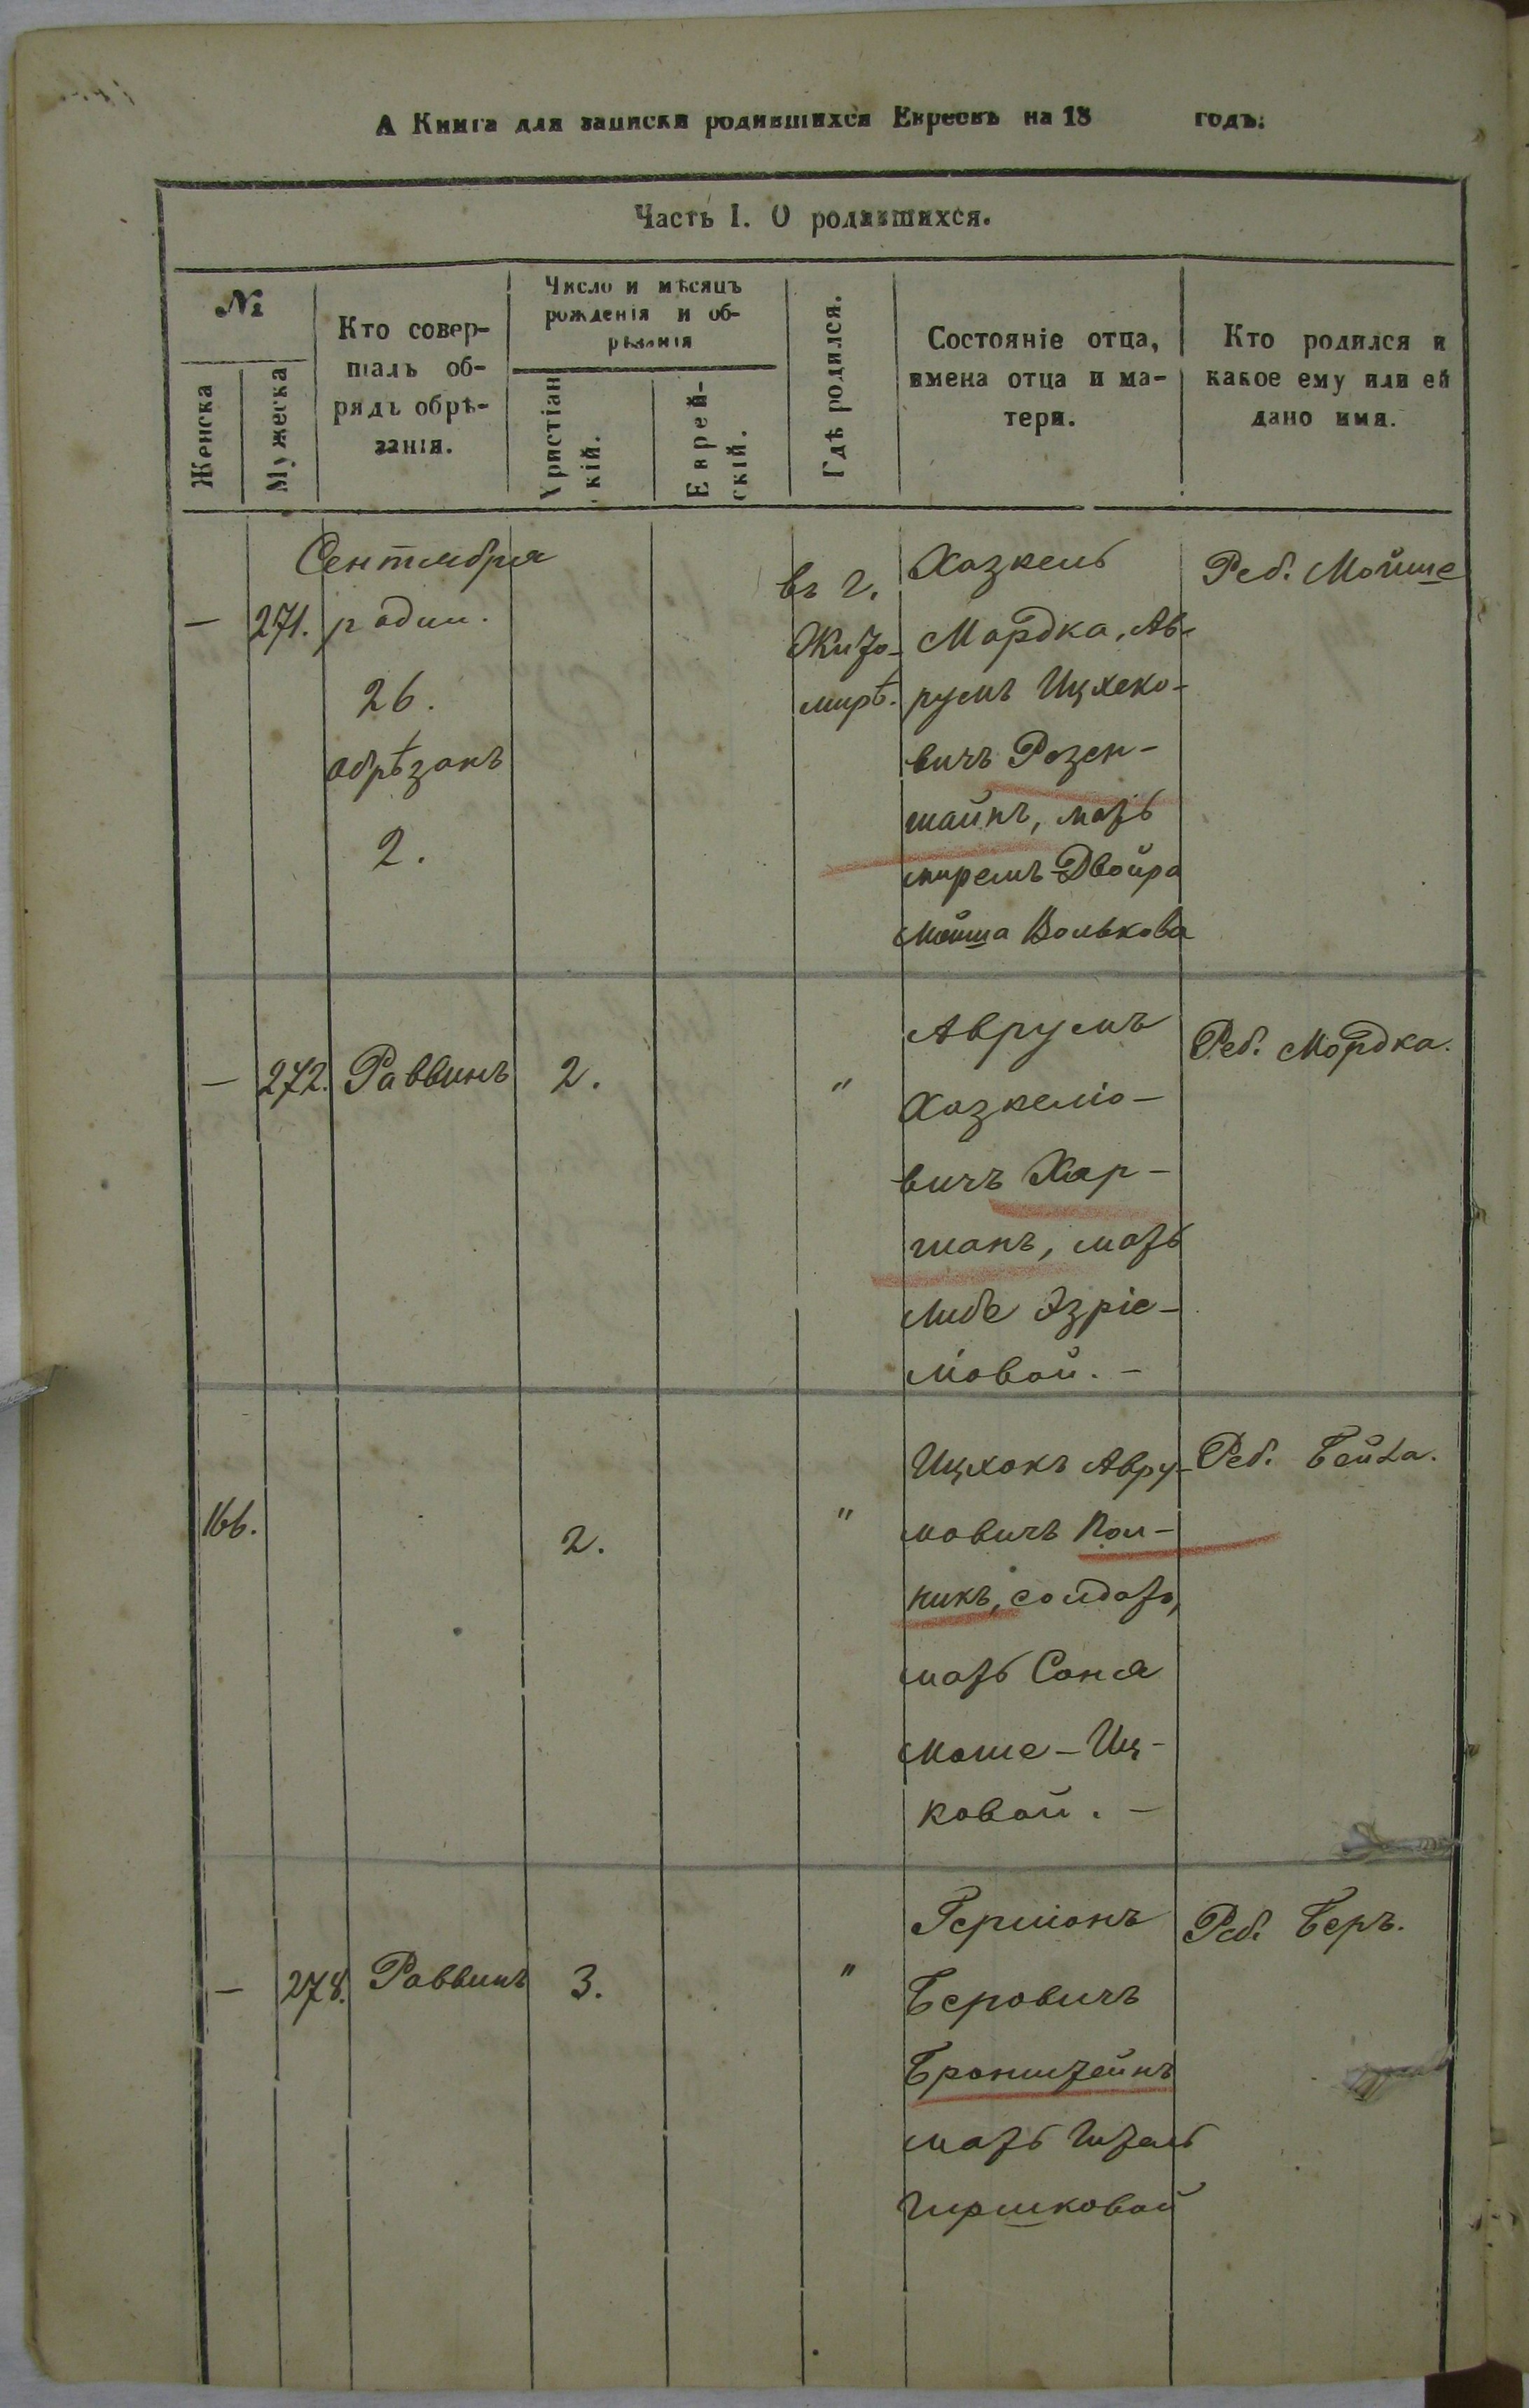 А Книга для записки родившихся Евреевъ на 18 годъ.
Часть I. О родившихся.
№
Женска
Мужеска
Кто совер-
шалъ об-
рядъ обрѣ-
занія.
Число и мѣсяцъ
рожденія и об-
рѣзанія
Христіан
скій.
Еврей-
скій.
Гдѣ родился.
Состояніе отца,
имена отца и ма-
тери.
Кто родился и
какое ему или ей
дано имя.
Сентября
— 271. родил.
26.
обрѣзанъ
2.
въ г.
Жито-
мирѣ.
Хазкель
Мордка, Ав-
румъ Ицхако-
вичъ Розен-
штайнъ, мать
Двойра
Мойша Волькова
Реб. Мойше
— 272. Раввинъ 2. "
Аврумъ
Хазкеліо-
вичъ Хар-
шанъ, мать
Либе Эзріе-
ліовой. —
Реб. Мордка.
166. 2. "
Ицхокъ Авру-
мовичъ Пол-
никъ, солдатъ,
мать Соня
Моше-Иц-
ковой. —
Реб. Бейла.
— 273. Раввинъ 3. "
Гершонъ
Беровичъ
Бронштейнъ
мать
Гиршковой
Реб. Беръ.